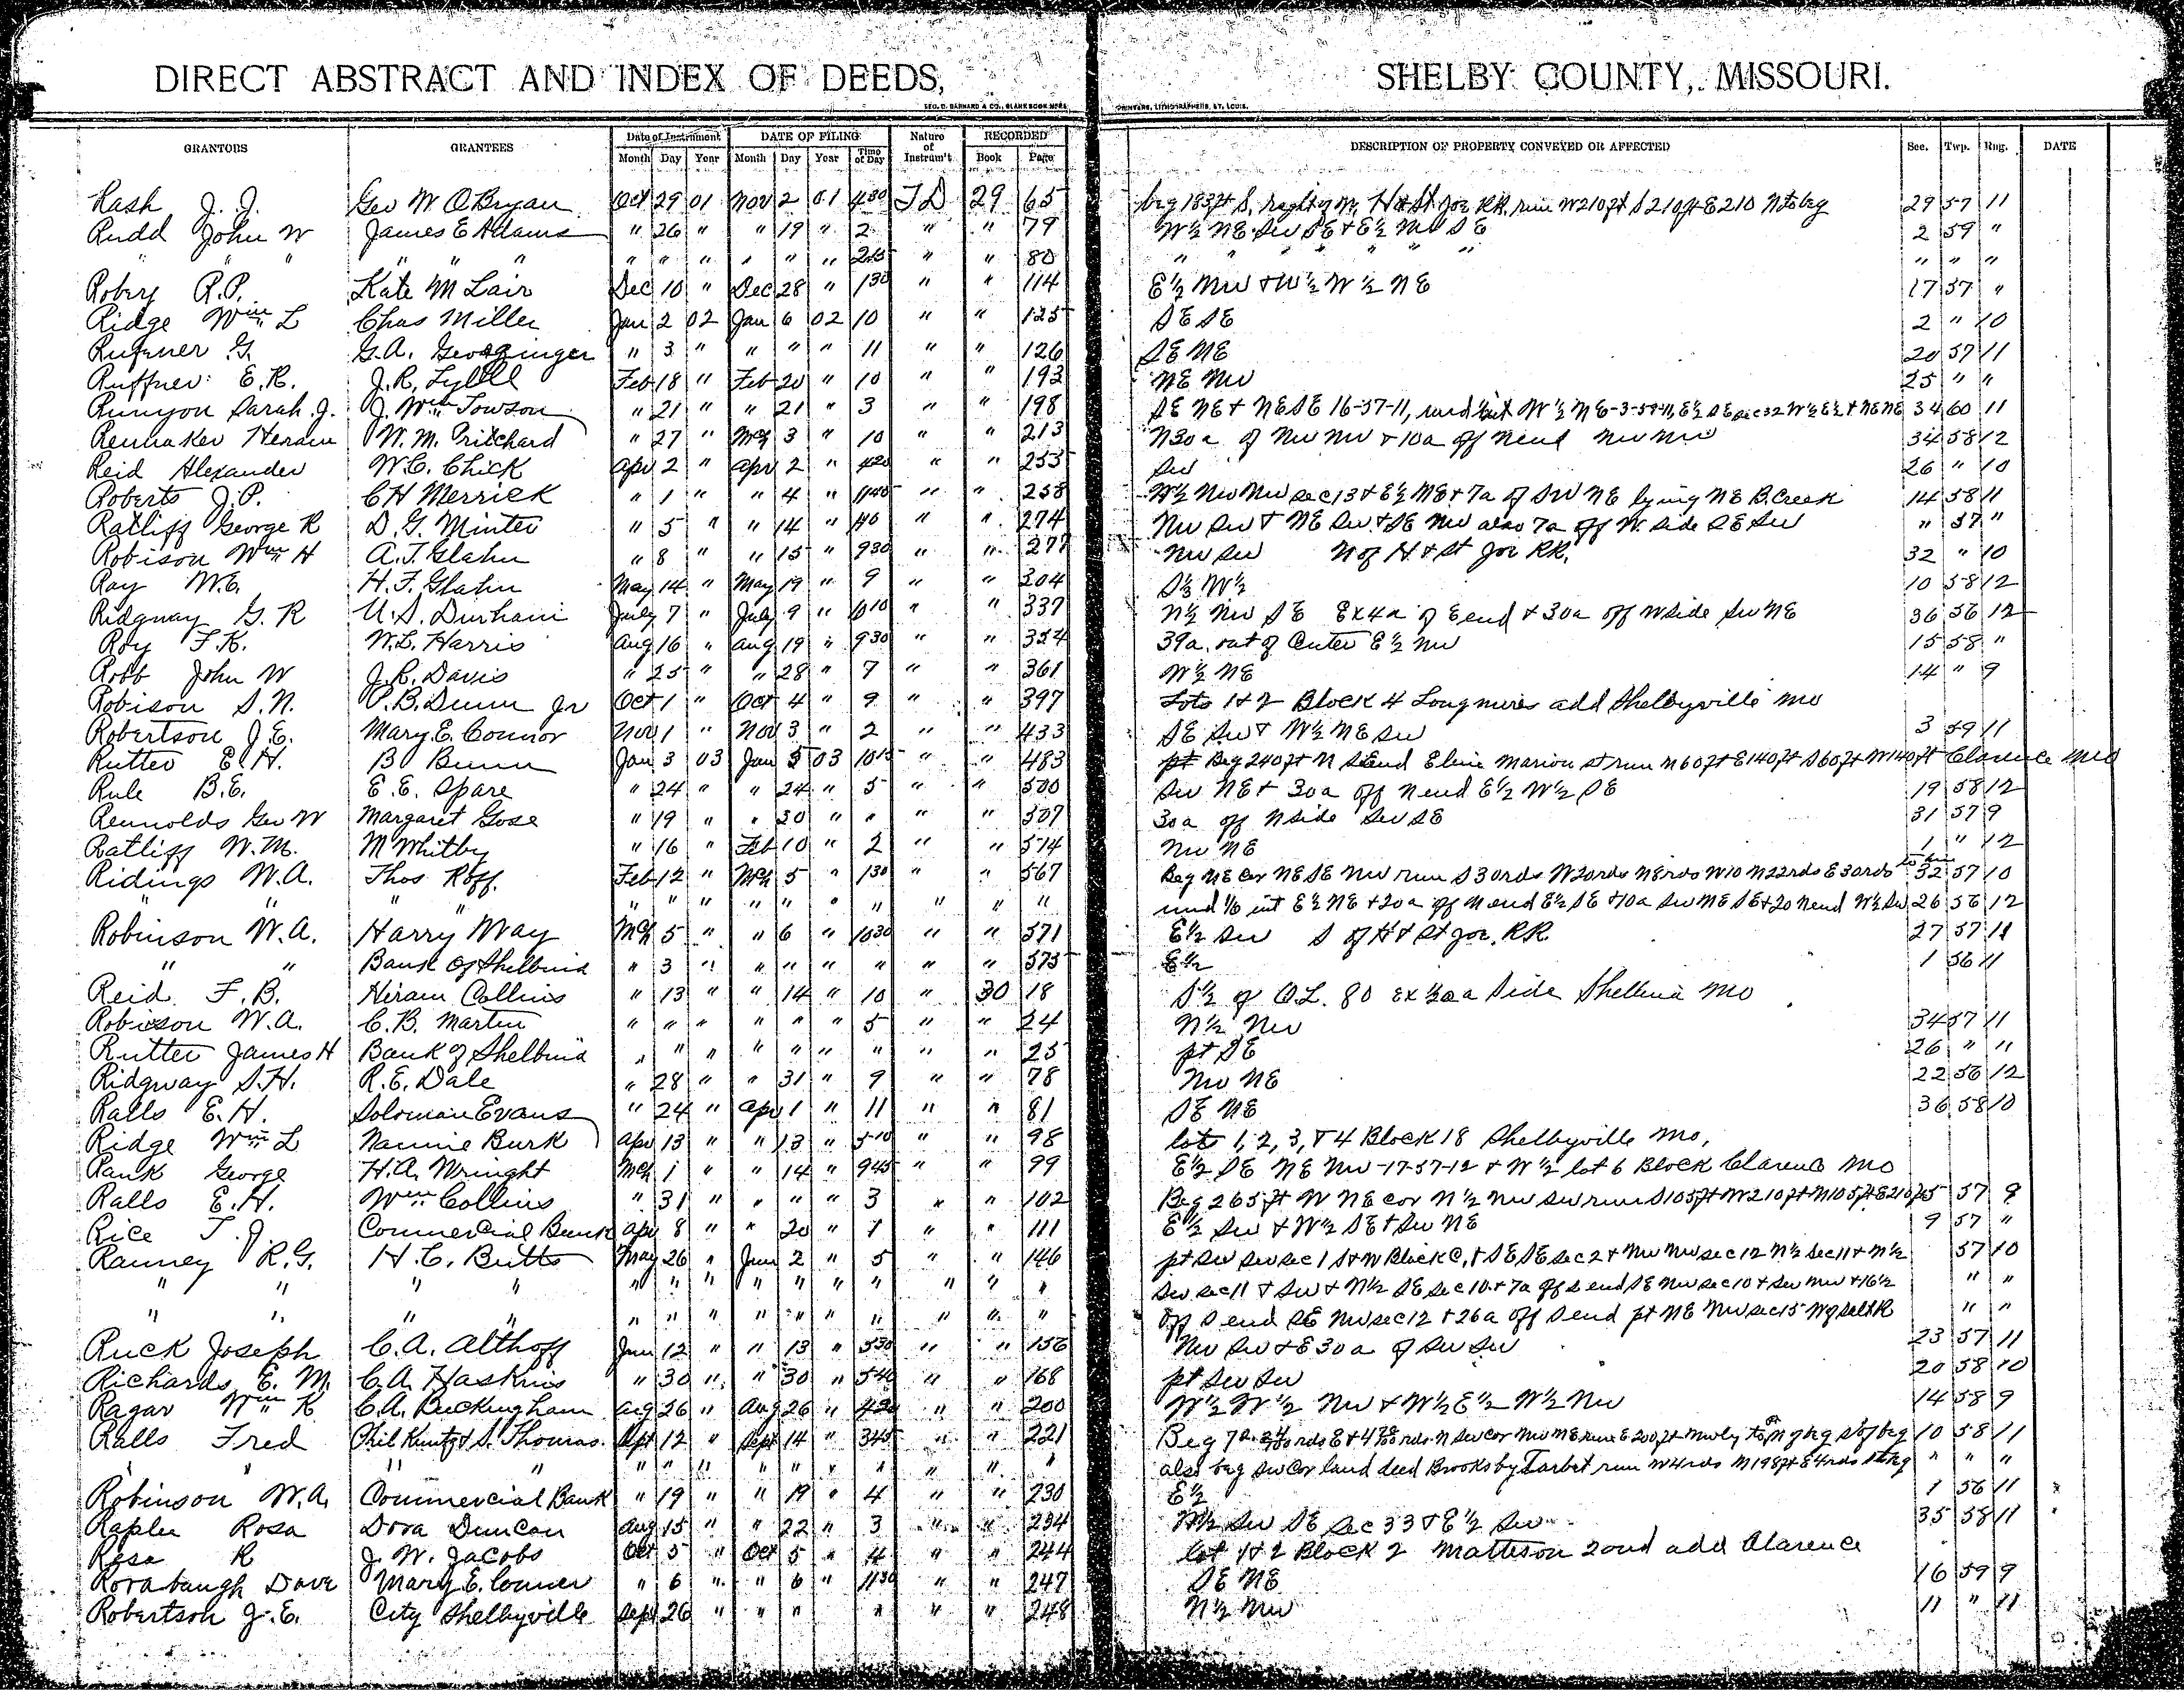 DIRECT ABSTRACT AND INDEX OF DEEDS, SHELBY COUNTY, MISSOURI.
GEO. D. BARNARD & CO., BLANK BOOK MFRS. PRINTERS, LITHOGRAPHERS, ST. LOUIS.
GRANTORS GRANTEES Date of Instrument DATE OF FILING Nature of Instrum't RECORDED DESCRIPTION OF PROPERTY CONVEYED OR AFFECTED Sec. Twp. Rng. DATE
Month Day Year Month Day Year Time of Day Book Page
Rash J. J. Geo W OBryan Oct 29 01 Nov 2 01 430 TD 29 65 beg 183ft S, H & St Joe RR. run W210ft S210ft E210 N to beg 29 57 11
Rudd John W James E Adams " 26 " " 19 " 2 " " 79 W½ NE Sw SE & E½ Nw SE 2 59 "
" " " " " " " " " " " " 245 " " 80 " " " " " " " "
Robey R.P. Kate M Lair Dec 10 " Dec 28 " 130 " " 114 E½ Nw & W½ W½ NE 17 57 "
Ridge Wm L Chas Miller Jan 2 02 Jan 6 02 10 " " 125 SE SE 2 " 10
Rufener G. G.A. " 3 " " " " 11 " " 126 SE NE 20 57 11
Ruffner E.R. J.R. Lyell Feb 18 " Feb 20 " 10 " " 193 NE Nw 25 " "
Runyon Sarah J. J. Wm Towson " 21 " " 21 " 3 " " 198 SE NE & NE SE 16-57-11, und ½ int W½ NE-3-59-11, E½ SE sec 32 W½ E½ & NE NE 34 60 11
Rennaker Heram W.M. Pritchard " 27 " Mch 3 " 10 " " 213 N30a of Nw Nw & 10a off N end Nw Nw 34 58 12
Reid Alexander W.C. Chick Apr 2 " Apr 2 " 420 " " 255 Sw 26 " 10
Roberts J.P. CH Merrick " 1 " " 4 " 1140 " " 258 W½ Nw Nw sec 13 & E½ NE & 7a of SW NE lying NE B. Creek 14 58 11
Ratliff George R D.G. Minter " 5 " " 14 " 140 " " 274 Nw Sw & NE Sw & SE Nw also 7a off W. side SE Sw " 57 "
Robison Wm H A.T. Glahn " 8 " " 15 " 930 " " 277 Nw Sw N of H & St Joe RR. 32 " 10
Ray W.E. H.F. Glahn May 14 " May 19 " 9 " " 304 S½ W½ 10 58 12
Ridgway G. R U.S. Durham July 7 " July 9 " 1010 " " 337 N½ Nw SE Ex 4a of E end & 30a off W side Sw NE 36 56 12
Roy F.K. W.L. Harris Aug 16 " Aug 19 " 930 " " 354 39a. out of Center E½ Nw 15 58 "
Robb John W J.C. Davis " 25 " " 28 " 7 " " 361 W½ NE 14 " 9
Robison S.N. P.B. Dunn Jr Oct 1 " Oct 4 " 9 " " 397 Lots 1 & 2 Block 4 Longmires add Shelbyville Mo
Robertson J.E. Mary E. Connor Nov 1 " Nov 3 " 2 " " 433 SE Sw & W½ NE Sw 3 59 11
Rutter E.H. B Bunn Jan 3 03 Jan 5 03 1015 " " 483 pt Beg 240ft N S end E line Marion St run N60ft E140ft S60ft W140ft Clarence Mo
Rule B.E. E.E. Spare " 24 " " 24 " 5 " " 500 Sw NE & 30a off N end E½ W½ SE 19 58 12
Reynolds Geo W Margaret Gose " 19 " " 30 " " " " 507 30a off N side Sw SE 31 57 9
Ratliff W.M. M Whitby " 16 " Feb 10 " 2 " " 514 Nw NE 1 " 12
Ridings W.A. Thos Roff. Feb 12 " Mch 5 " 130 " " 567 Beg NE cor NE SE Nw run S30rds W20rds N8rds W10 N22rds E30rds 32 57 10
" " " " " " " " " " " " " " und 1/6 int E½ NE & 20a off N end E½ SE & 10a Sw NE SE & 20 N end W½ Sw 26 56 12
Robinson W.A. Harry May Mch 5 " " 6 " 1030 " " 571 E½ Sw S of H & St Joe. RR. 27 57 11
" " Bank of Shelbina " 3 " " " " " " " 575 E½ 1 56 11
Reid. F.B. Hiram Collins " 13 " " 14 " 10 " 30 18 S½ of O.L. 80 ex side Shelbina Mo
Robinson W.A. C.B. Martin " " " " " " 5 " " 24 N½ Nw 34 57 11
Rutter James H Bank of Shelbina " " " " " " " " " 25 pt SE 26 " 11
Ridgway S.H. R.E. Dale " 28 " " 31 " 9 " " 78 Nw NE 22 56 12
Ralls E.H. Soloman Evans " 24 " Apr 1 " 11 " " 81 SE NE 36 58 10
Ridge Wm L Nannie Burk Apr 13 " " 13 " 510 " " 98 lots 1, 2, 3, & 4 Block 18 Shelbyville Mo,
Rank George H.A. Wright Mch 1 " " 14 " 945 " " 99 E½ SE NE Nw-17-57-12 & W½ lot 6 Block Clarence Mo
Ralls E.H. Wm Collins " 31 " " " " 3 " " 102 Beg 265ft W NE cor N½ Nw Sw run S105ft W210ft N105ft E210ft 5 57 9
Rice T.J. Commercial Bank Apr 8 " " 20 " 1 " " 111 E½ Sw & W½ SE & Sw NE 9 57 "
Ranney R.G. H.C. Butts May 26 " Jun 2 " 5 " " 146 pt Sw Sw sec 1 S & W Block C, & SE SE sec 2 & Nw Nw sec 12 N½ Sec 11 & N½ 57 10
" " " " " " " " " " " " " " Sw sec 11 & Sw & N½ SE sec 10 & 7a off S end SE Nw sec 10 & Sw Nw & 16½ " "
" " " " " " " " " " " " " " off S end SE Nw sec 12 & 26a off S end pt NE Nw sec 15 " "
Ruck Joseph C.A. Althoff Jun 12 " " 13 " 530 " " 156 Nw Sw & E30a of Sw Sw 23 57 11
Richards E. M. C.A. Haskins " 30 " " 30 " 540 " " 168 pt Sw Sw 20 58 10
Ragar Wm K C.A. Buckingham Aug 26 " Aug 26 " 420 " " 200 W½ W½ Nw & W½ E½ W½ Nw 14 58 9
Ralls Fred Phil Kuntz & S. Thomas. Sept 12 " Sept 14 " 345 " " 221 Beg rds E & rds. N Sw cor Nw NE run E 200ft Nwly 10 58 11
" " " " " " " " " " " " " also beg Sw Cor land deed Brooks by Tarbet run W4rds N198ft E4rds S to beg " " "
Robinson W.A. Commercial Bank " 19 " " 19 " 4 " " 230 E½ 1 56 11
Raplee Rosa Dora Duncan Aug 15 " " 22 " 3 " " 234 W½ Sw SE Sec 33 & E½ Sw 35 58 11
Rosa R J.W. Jacobs Oct 5 " Oct 5 " 4 " " 244 lot 1 & 2 Block 2 Matteson 2ond add Clarence
Rorabaugh Dave Mary E. Conner " 6 " " 6 " 1130 " " 247 SE NE 16 59 9
Robertson J.E. City Shelbyville Sept 26 " " " " " " 248 N½ Nw 11 " 11